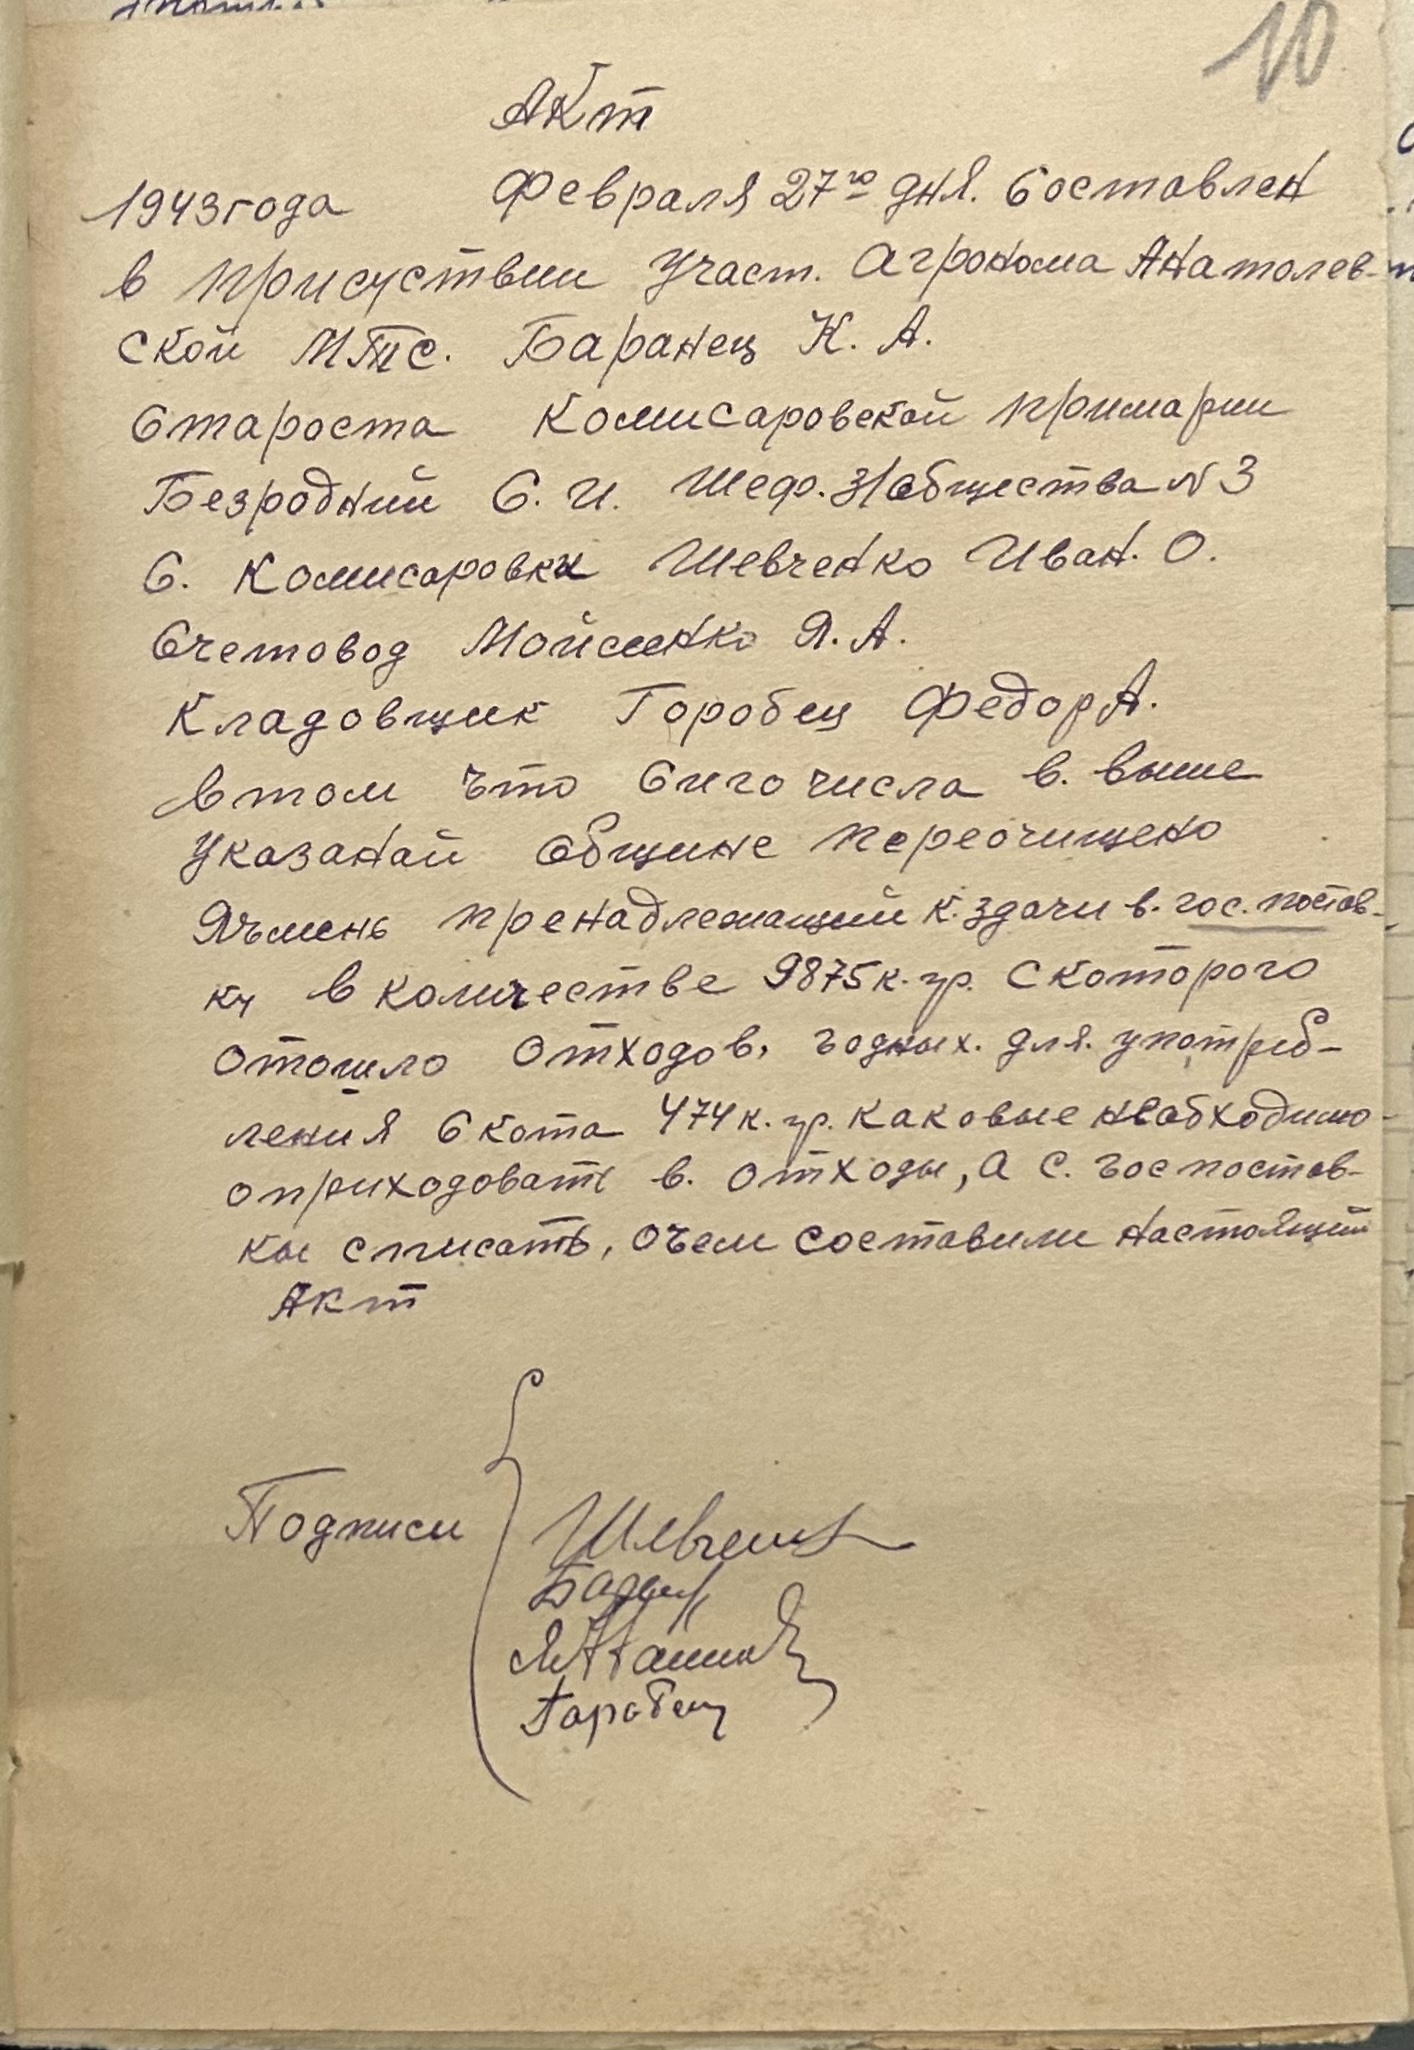 10
Акт
1943 года Февраля 27го дня. Составлен
в присуствии Участ. Агронома Анатолев-
ской МТС. Баранец К. А.
Староста Комисаровской примарии
Безродний С. И. Шеф. З/Общества N 3
С. Комисаровки Шевченко Иван. О.
Счетовод Мойсеенко Я. А.
Кладовщик Горобец Федор А.
В том что Сиго числа в. выше
Указаной Общине переочищено
Ячмень пренадлежащий к. здачи в. гос. постав-
ку в количестве 9875 к. гр. С которого
отошло отходов, годных. для. употреб-
ления Скота 474 к. гр. каковые необходимо
оприходовать в. отходы, а с. госпостав-
ки списать, очем составили настоящий
Акт
Подписи
Шевченко
Горобец